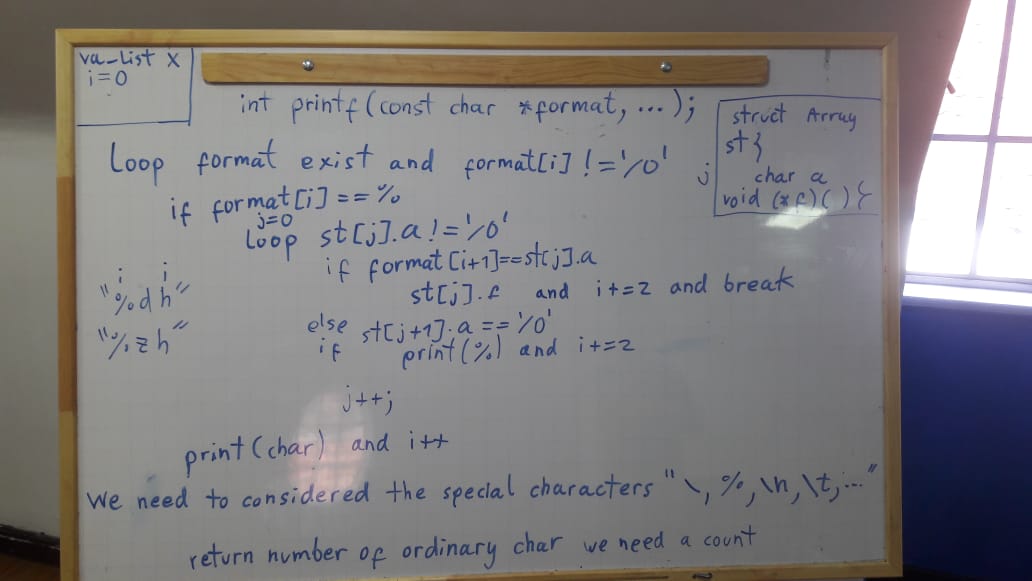 va_list x
i=0
int printf(const char *format, ...);
struct Array
st{
char a
void (*f)() }
j
Loop format exist and format[i] != '\0'
if format[i] == %
j=0
Loop st[j].a != '\0'
if format[i+1]==st[j].a
st[j].f and i+=2 and break
i i
"%dh"
"%zh"
else st[j+1].a == '\0'
if print(%) and i+=2
j++;
print(char) and i++
We need to considered the special characters "\, %, \n, \t, ..."
return number of ordinary char we need a count